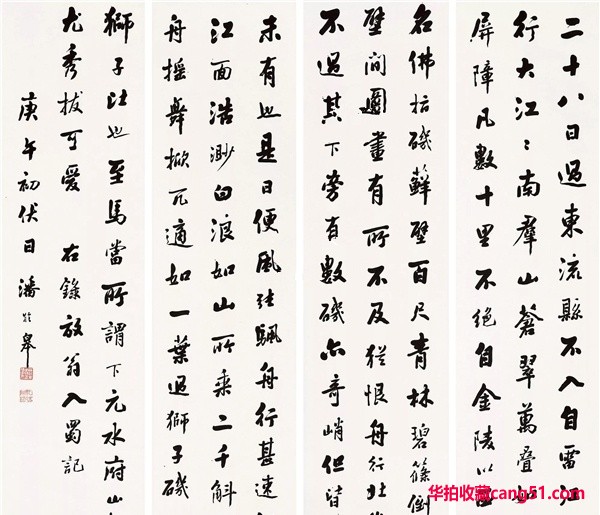 二十八日過東流縣不入自雷江
行大江〻南羣山蒼翠萬疊如
屏障凡數十里不絕自金陵以
名佛指磯蘚壁百尺青林碧篠倒
壁間圖畫有所不及猶恨舟行北
不過其下旁有數磯亦奇峭但皆
未有也是日便風張颿舟行甚速
江面浩渺白浪如山所乘二千斛
舟搖舞掀兀適如一葉過獅子磯
獅子比也至馬當所謂下元水府山
尤秀拔可愛 右錄放翁入蜀記
庚午初伏日潘齡皋
华拍收藏cang51.com